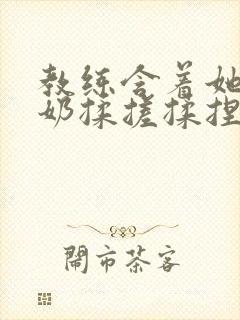 教练含着她
奶揉搓揉捏
闹市茶客